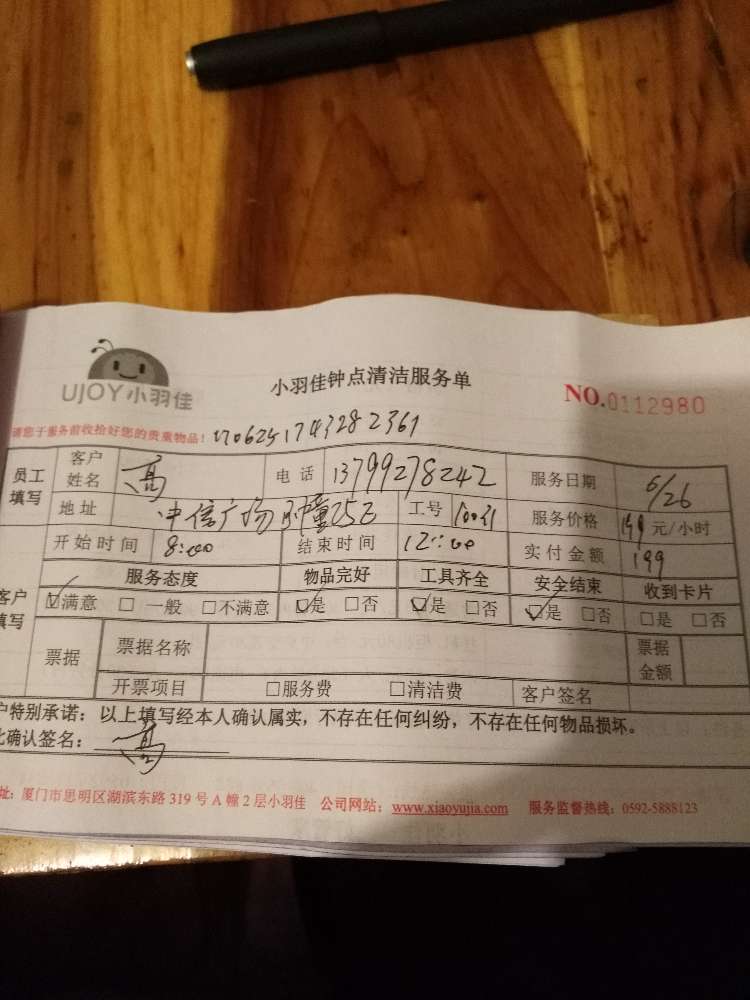 UJOY小羽佳
小羽佳钟点清洁服务单
NO.0112980
请您于服务前收拾好您的贵重物品！ 1706251743282361
员工填写 客户姓名 高 电话 13799278242 服务日期 6/26
地址 中信广场 25 工号 服务价格 199 元/小时
开始时间 8:00 结束时间 12:00 实付金额 199
服务态度 物品完好 工具齐全 安全结束 收到卡片
客户填写 ☑满意 □一般 □不满意 ☑是 □否 ☑是 □否 ☑是 □否 □是 □否
票据 票据名称 票据金额
开票项目 □服务费 □清洁费 客户签名
户特别承诺：以上填写经本人确认属实，不存在任何纠纷，不存在任何物品损坏。
确认签名： 高
址：厦门市思明区湖滨东路 319 号 A 幢 2 层小羽佳 公司网站：www.xiaoyujia.com 服务监督热线：0592-5888123